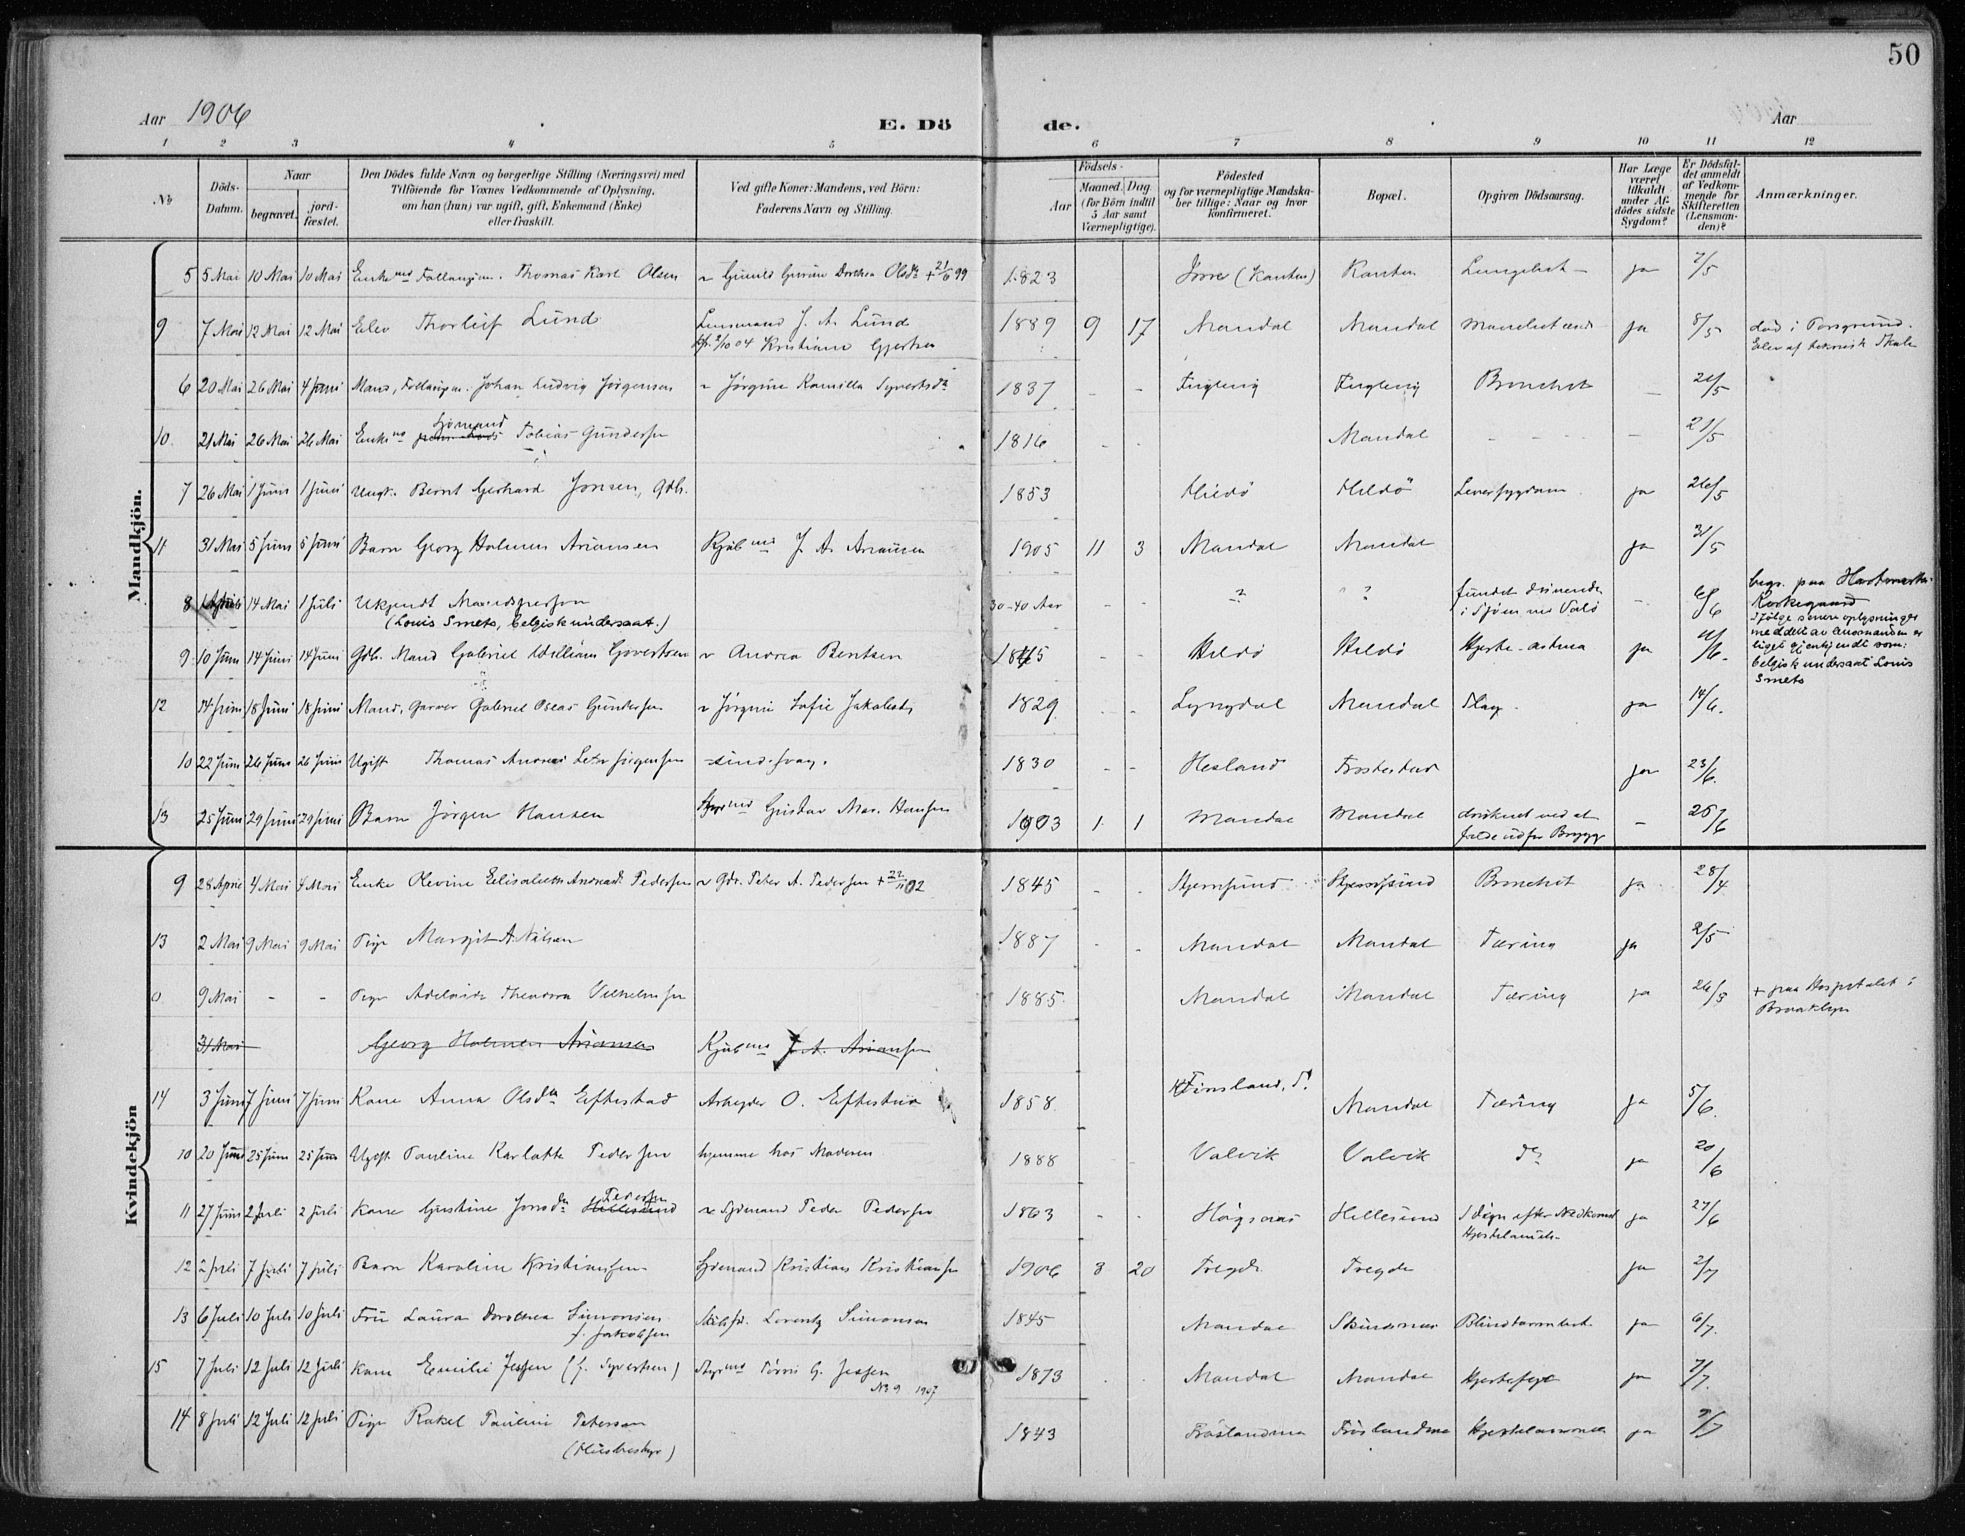 50
Aar 1906
E. Dö de.
Aar
1 2 3 4 5 6 7 8 9 10 11 12
No
Döds-Datum.
Naar
begravet.
jord-fæstet.
Den Dödes fulde Navn og borgerlige Stilling (Næringsvei) med
Tilföiende for Voxnes Vedkommende af Oplysning,
om han (hun) var ugift, gift, Enkemand (Enke)
eller fraskilt.
Ved gifte Koner: Mandens, ved Börn:
Faderens Navn og Stilling.
Födsels-
Aar
Maaned. Dag
(for Börn indtil
5 Aar samt
Værnepligtige).
Födested
og for værnepligtige Mandska-
ber tillige: Naar og hvor
konfirmeret.
Bopæl.
Opgiven Dödsaarsag.
Har Læge
været
tilkaldt
under Af-
dödes sidste
Sygdom?
Er Dödsfal-
det anmeldt
af Vedkom-
mende for
Skifteretten
(Lensman-
den)?
Anmærkninger.
Mandkjön.
5 5 Mai 10 Mai 10 Mai Thomas Karl Olsen 1823 (Kanten) Kanten ja 7/5
9 7 Mai 12 Mai 12 Mai Elev Thorleif Lund Lensmand J. A. Lund 1889 9 17 Mandal Mandal ja 8/5 død i Porsgrund.
Kristiane Gjertsen Elev af teknisk Skole
6 20 Mai 26 Mai 4 Juni Mand, Johan Ludvig Jørgensen Jørgine Kamilla Syvertsdr 1837 - - Bronchit - 21/5
10. 21 Mai 26 Mai 26 Mai Enkemd Sjömand Tobias Gundersen 1816 - - Mandal - 21/5
7 26 Mai 1 Juni 1 Juni Ungk. Bernt Gerhard Jonsen, Gdb. 1853 Hildö Hildö Leversygdom ja 26/5
11 31 Mai 5 Juni 5 Juni Barn Georg Holmen Ariansen Kjøbmd J. A. Ariansen 1905 11 3 Mandal Mandal ja 31/5
8 14 Mai 1 Juli Ukjendt Mandsperson 30-40 Aar - - ? ? fundet drivende - 6/6 begr. paa
(Louis Smets, belgisk undersaat.) i Sjöen ved Kirkegaard
Ifölge senere oplysninger
meddelt av lensmanden er
liget gjenkjendt som:
belgisk undersaat Louis
Smets
9 10 Juni 14 Juni 14 Juni Gdb. Mand Gabriel William Govertsen Andrea Bentsen 1845 - - Hildö Hildö Hjerte-astma ja
12 14 Juni 18 Juni 18 Juni Mand, Garver Gabriel Oseas Gundersen Jørgine Sofie 1829 - - Lyngdal Mandal Slag. ja 14/6.
10 22 Juni 26 Juni 26 Juni Ugift Thomas Andreas sindssvag. 1830 - - Hesland Frostestad ja 23/6.
13 25 Juni 29 Juni 29 Juni Barn Jörgen Hansen Gustav Mar. Hansen 1903 1. 1 Mandal Mandal druknet ved at - 25/6
falde ud fra Brygge
Kvindekjön
9 28 April 4 Mai 4 Mai Enke Olevine Elisabeth Andreasdr Pedersen Gdr. Peter A. Pedersen + 22/11 02 1845 - - Skjernsund Skjernsund Bronchit ja 28/4
13 2 Mai 9 Mai 9 Mai Pige Margit A. Nilsen 1887 - - Mandal Mandal Tæring ja 2/5
0 9 Mai - - Pige Adelaide Theodora Vilhelmsen 1885 Mandal Mandal Tæring ja 26/5 + paa Hospitalet i
Brooklyn
31 Mai Georg Holmen Ariansen Kjøbmd J. A. Ariansen
14 3 Juni 7 Juni 7 Juni Kone Anna Olsdtr Eftestad Arbeyder O. Eftestad 1858 Finsland, Mandal Tæring ja 5/6.
10 20 Juni 25 Juni 25 Juni Ugift Pauline Karlotte Pedersen hjemme hos Moderen 1888 Valvik Valvik do ja 20/6
11 27 Juni 2 Juli 2 Juli Kone Gustine Jonsdr Hillesund Pedersen Sjömand Peder Pedersen 1863 - - Högsnas Hillesund ja 27/6
12 2 Juli 7 Juli 7 Juli Barn Karoline Kristiansen Sjömand Kristian Kristiansen 1906 3 20 Tregde Tregde ja 2/7
13 6 Juli 10 Juli 10 Juli Fru Laura Dorothea Simonsen Lorentz Simonsen 1845 Mandal Skindsnes Blindtarmbet. ja 6/7.
f. Jakobsen
15 7 Juli 12 Juli 12 Juli Kone Emilie Jessen (f. Syvertsen) Tørris G. Jessen 1873 Mandal Mandal Hjertefeil ja 7/7.
No 9 1907
14 8 Juli 12 Juli 12 Juli Pige Rakel Pauline Peterson 1843 ja 9/7
(Husbestyr)